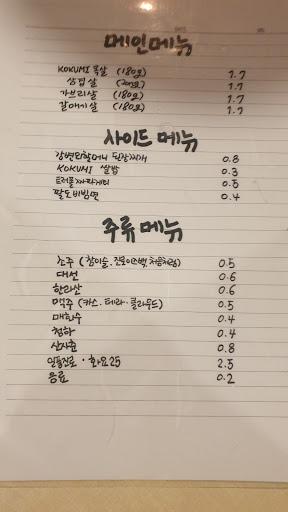 메인메뉴
KOKUMI 목살 (180g) 1.7
삼겹살 (200g) 1.7
가브리살 (180g) 1.7
갈매기살 (180g) 1.7
사이드 메뉴
강변외할머니 된장찌개 0.8
KOKUMI 쌀밥 0.3
트러플짜파게티 0.5
팔도비빔면 0.4
주류 메뉴
소주 (참이슬.진로이즈백.처음처럼) 0.5
대선 0.6
한라산 0.6
맥주 (카스.테라.클라우드) 0.5
매화수 0.4
청하 0.4
산사춘 0.8
일품진로 · 화요25 2.5
음료 0.2